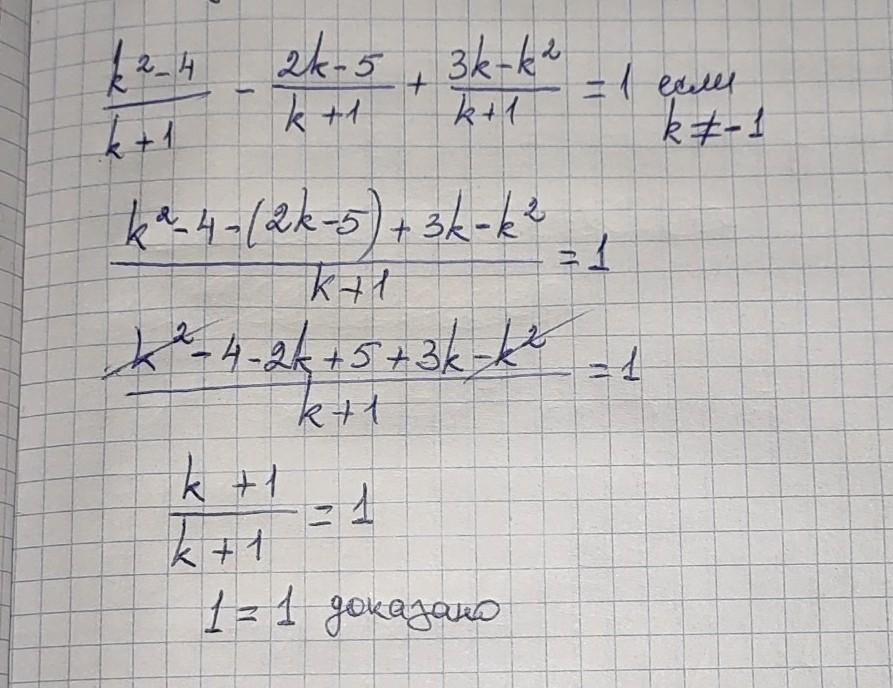 (k² - 4)/(k + 1) - (2k - 5)/(k + 1) + (3k - k²)/(k + 1) = 1 если
k ≠ -1
(k² - 4 - (2k - 5) + 3k - k²)/(k + 1) = 1
(k² - 4 - 2k + 5 + 3k - k²)/(k + 1) = 1
(k + 1)/(k + 1) = 1
1 = 1 доказано